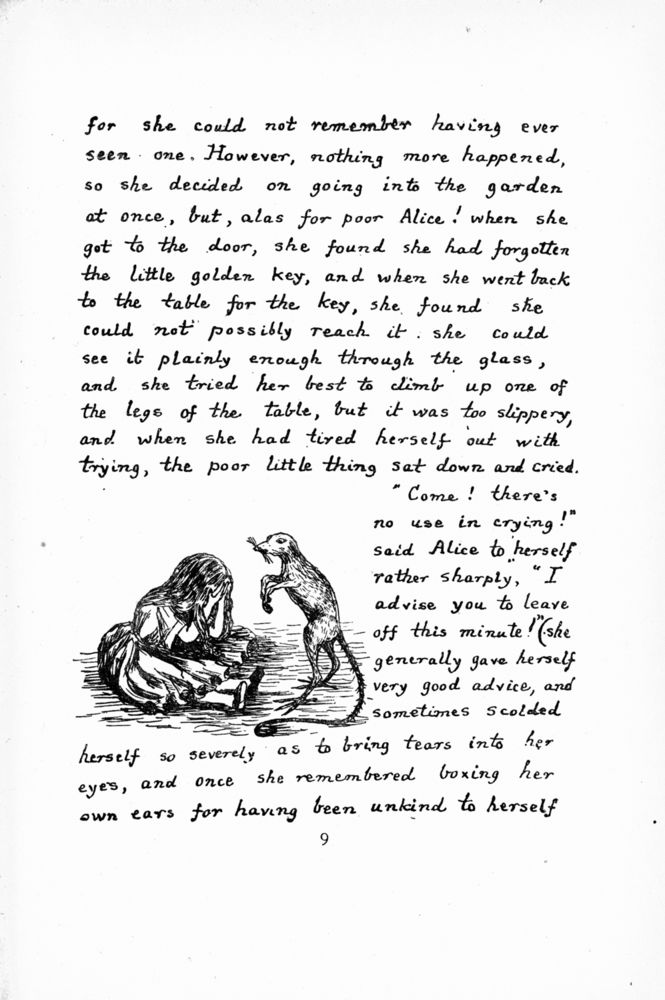 for she could not remember having ever
seen one. However, nothing more happened,
so she decided on going into the garden
at once, but, alas for poor Alice! when she
got to the door, she found she had forgotten
the little golden key, and when she went back
to the table for the key, she found she
could not possibly reach it: she could
see it plainly enough through the glass,
and she tried her best to climb up one of
the legs of the table, but it was too slippery,
and when she had tired herself out with
trying, the poor little thing sat down and cried.
"Come! there's
no use in crying!"
said Alice to herself
rather sharply, "I
advise you to leave
off this minute!" (she
generally gave herself
very good advice, and
sometimes scolded
herself so severely as to bring tears into her
eyes, and once she remembered boxing her
own ears for having been unkind to herself
9